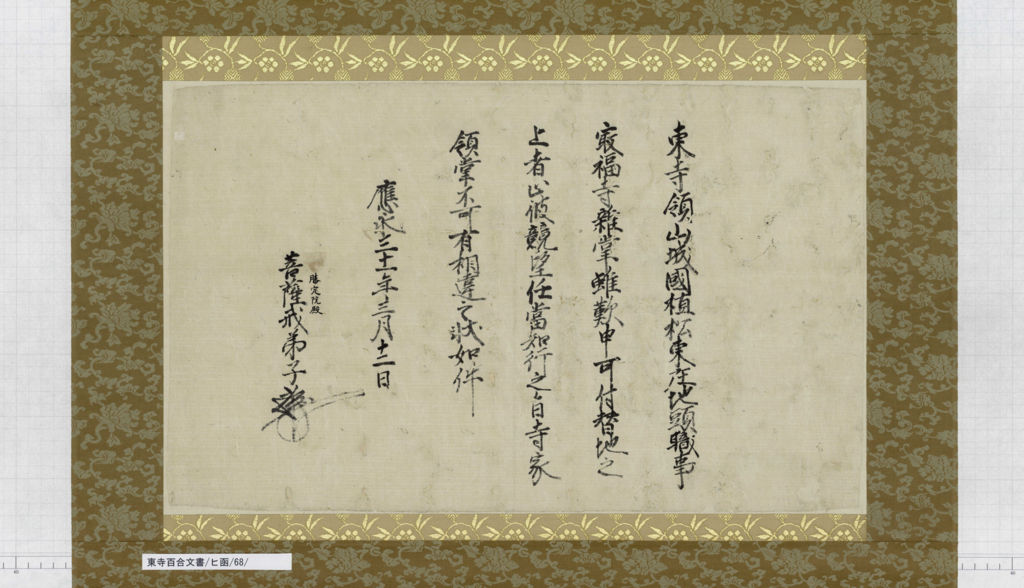 東寺領山城國植松東庄地頭職事
寂福寺雜掌雖歎申可付替地之
上者止彼競望任當知行之旨寺家
領掌不可有相違之状如件
應永三十一年三月十二日
勝定院殿
菩薩戒弟子
東寺百合文書/ヒ函/68/